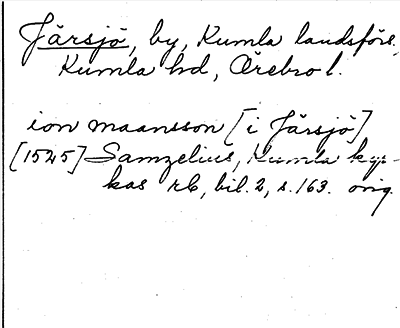 Järsjö, by, Kumla landsförs.,
Kumla hd, Örebro l.
ion maansson [i Järsjö]
[1545] Samzelius, Kumla kyr-
kas rb, bil. 2, s. 163. orig.